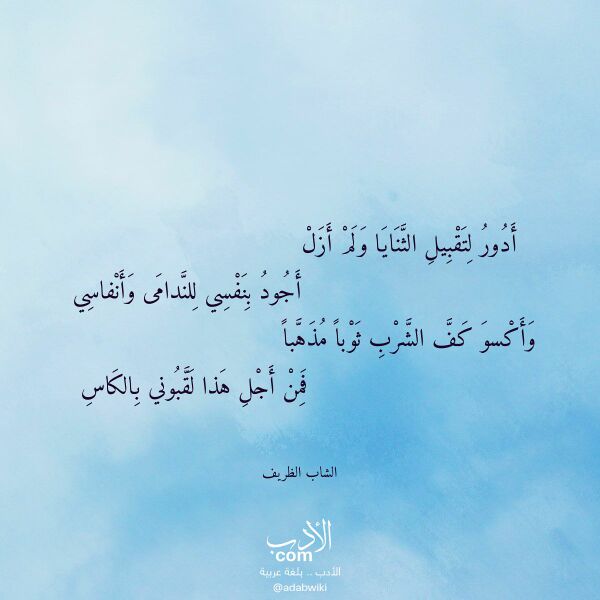 أَدُورُ لِتَقْبِيلِ الثَّنَايَا وَلَمْ أَزَلْ
أَجُودُ بِنَفْسِي لِلنَّدامَى وَأَنْفاسِي
وَأَكْسوَ كَفَّ الشَّرْبِ ثَوْباً مُذَهَّباً
فَمِنْ أَجْلِ هَذا لَقَّبُوني بِالكَاسِ
الشاب الظريف
الأدب
com
الأدب .. بلغة عربية
@adabwiki